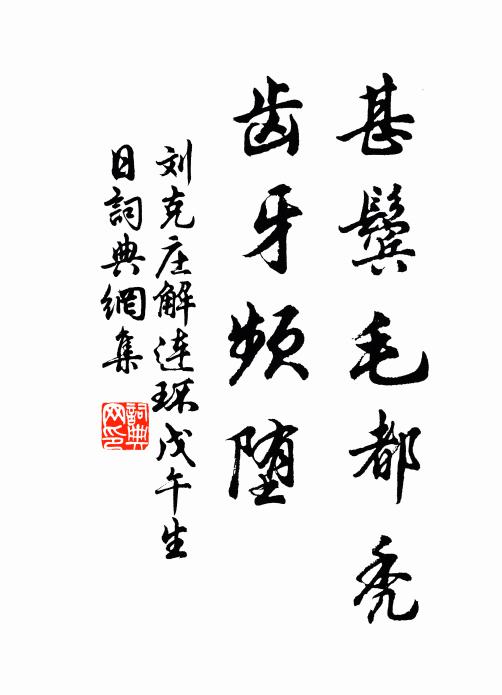 甚鬓毛都秃
齿牙频堕
刘克庄解连环戊午生
日词典網集
詞典
网印